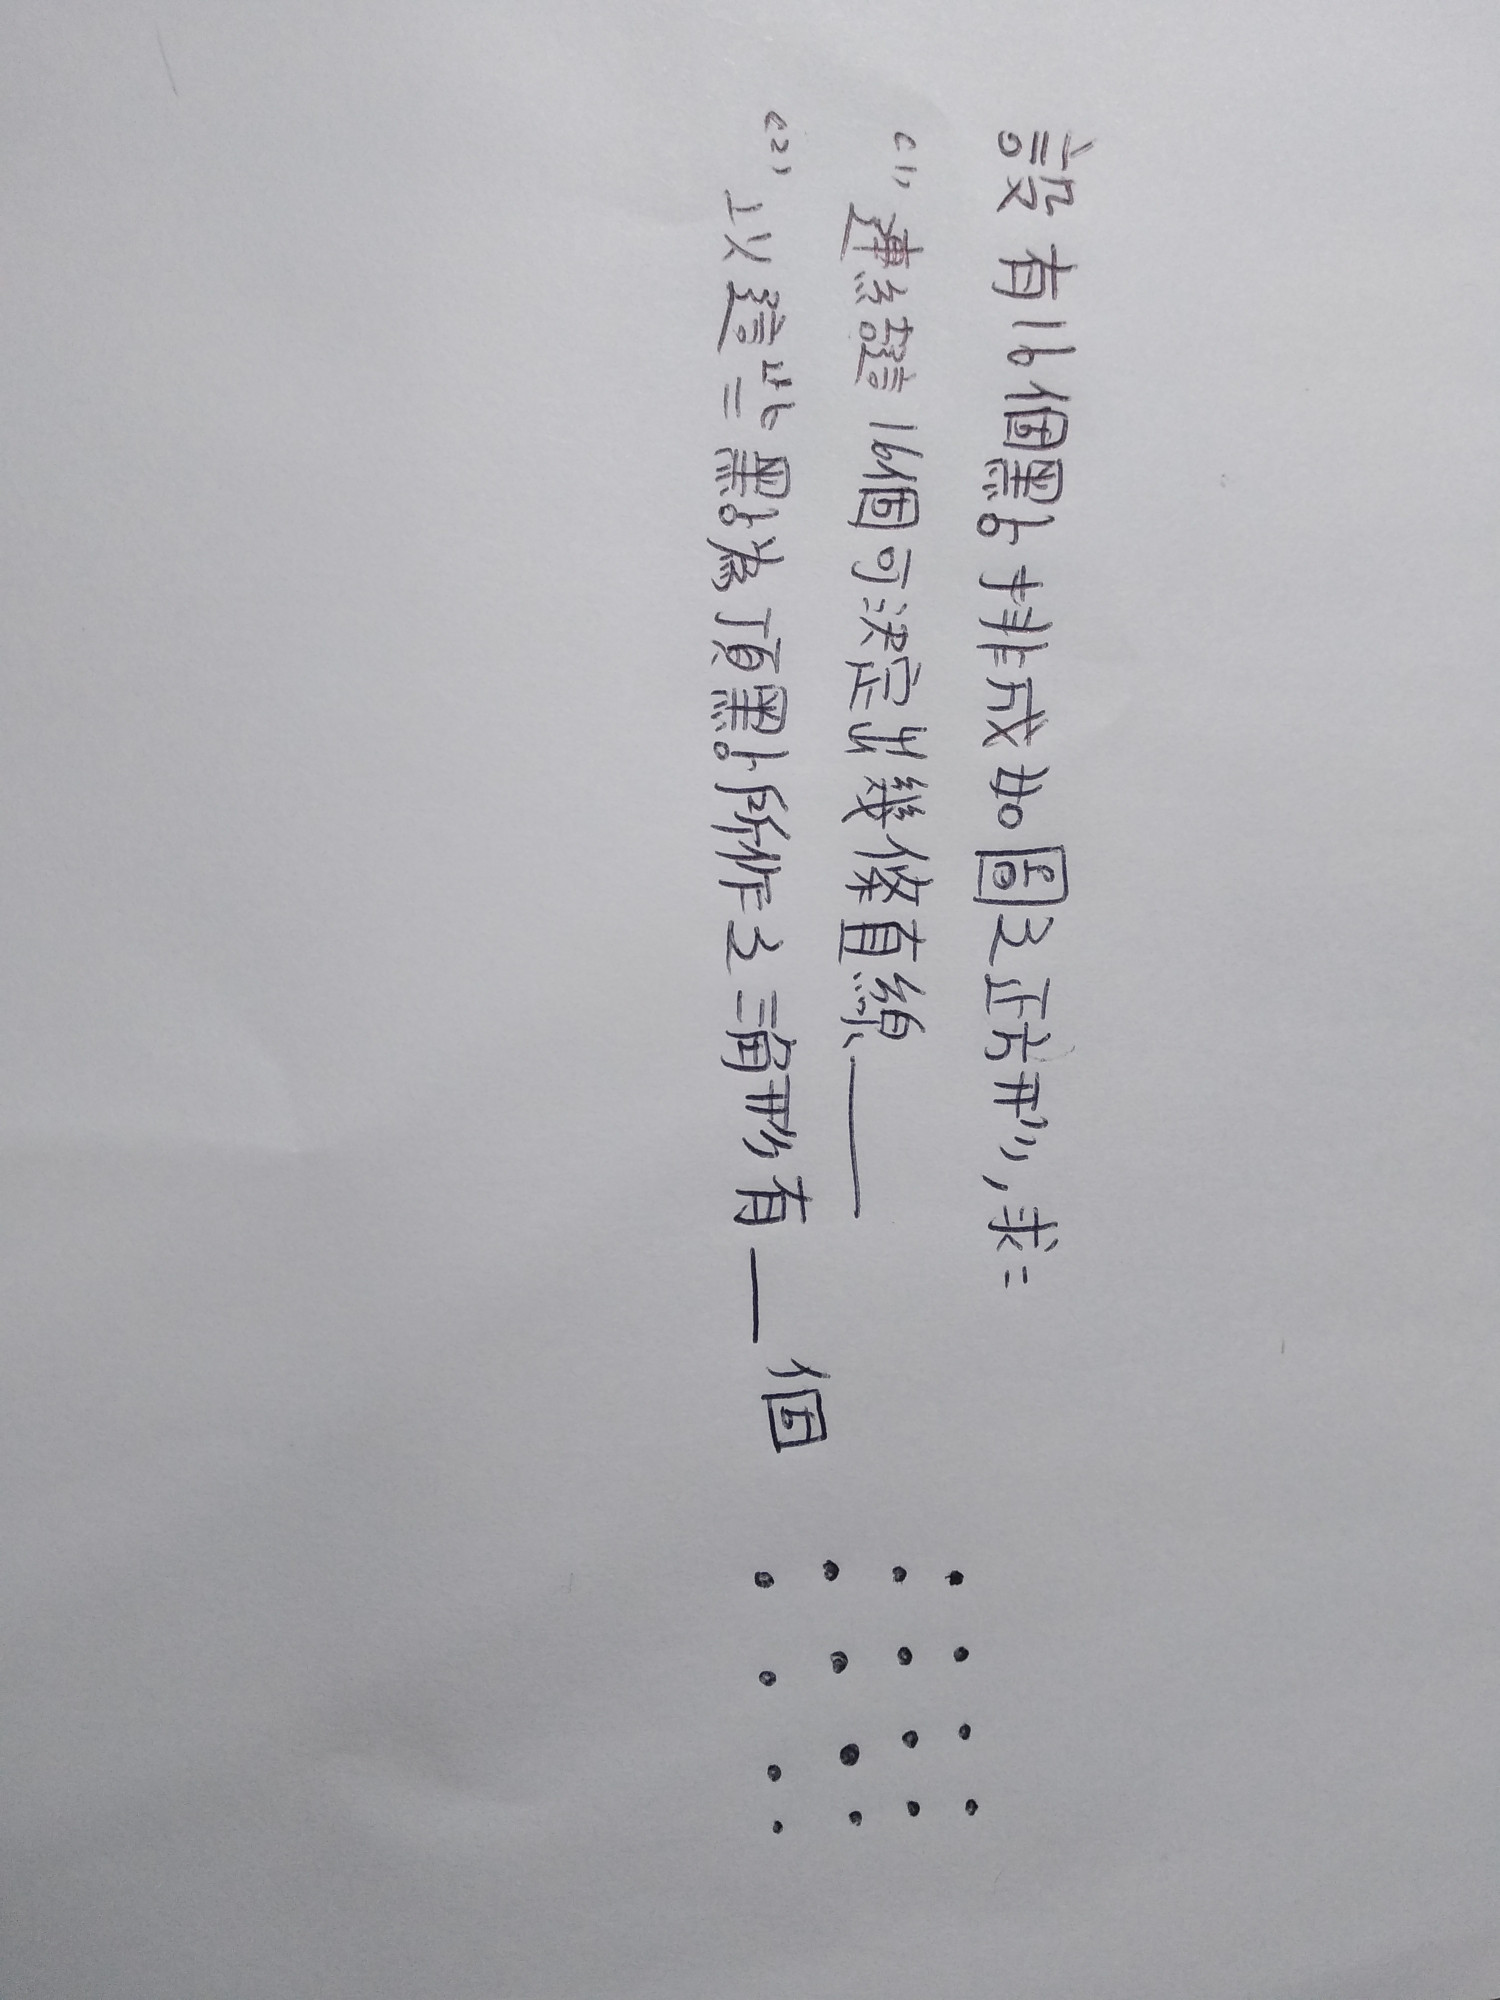 設有16個點排成如圖之正方形,求:
(1) 連結這16個可決定出幾條直線____
(2) 以這些點為頂點所作之三角形有__個